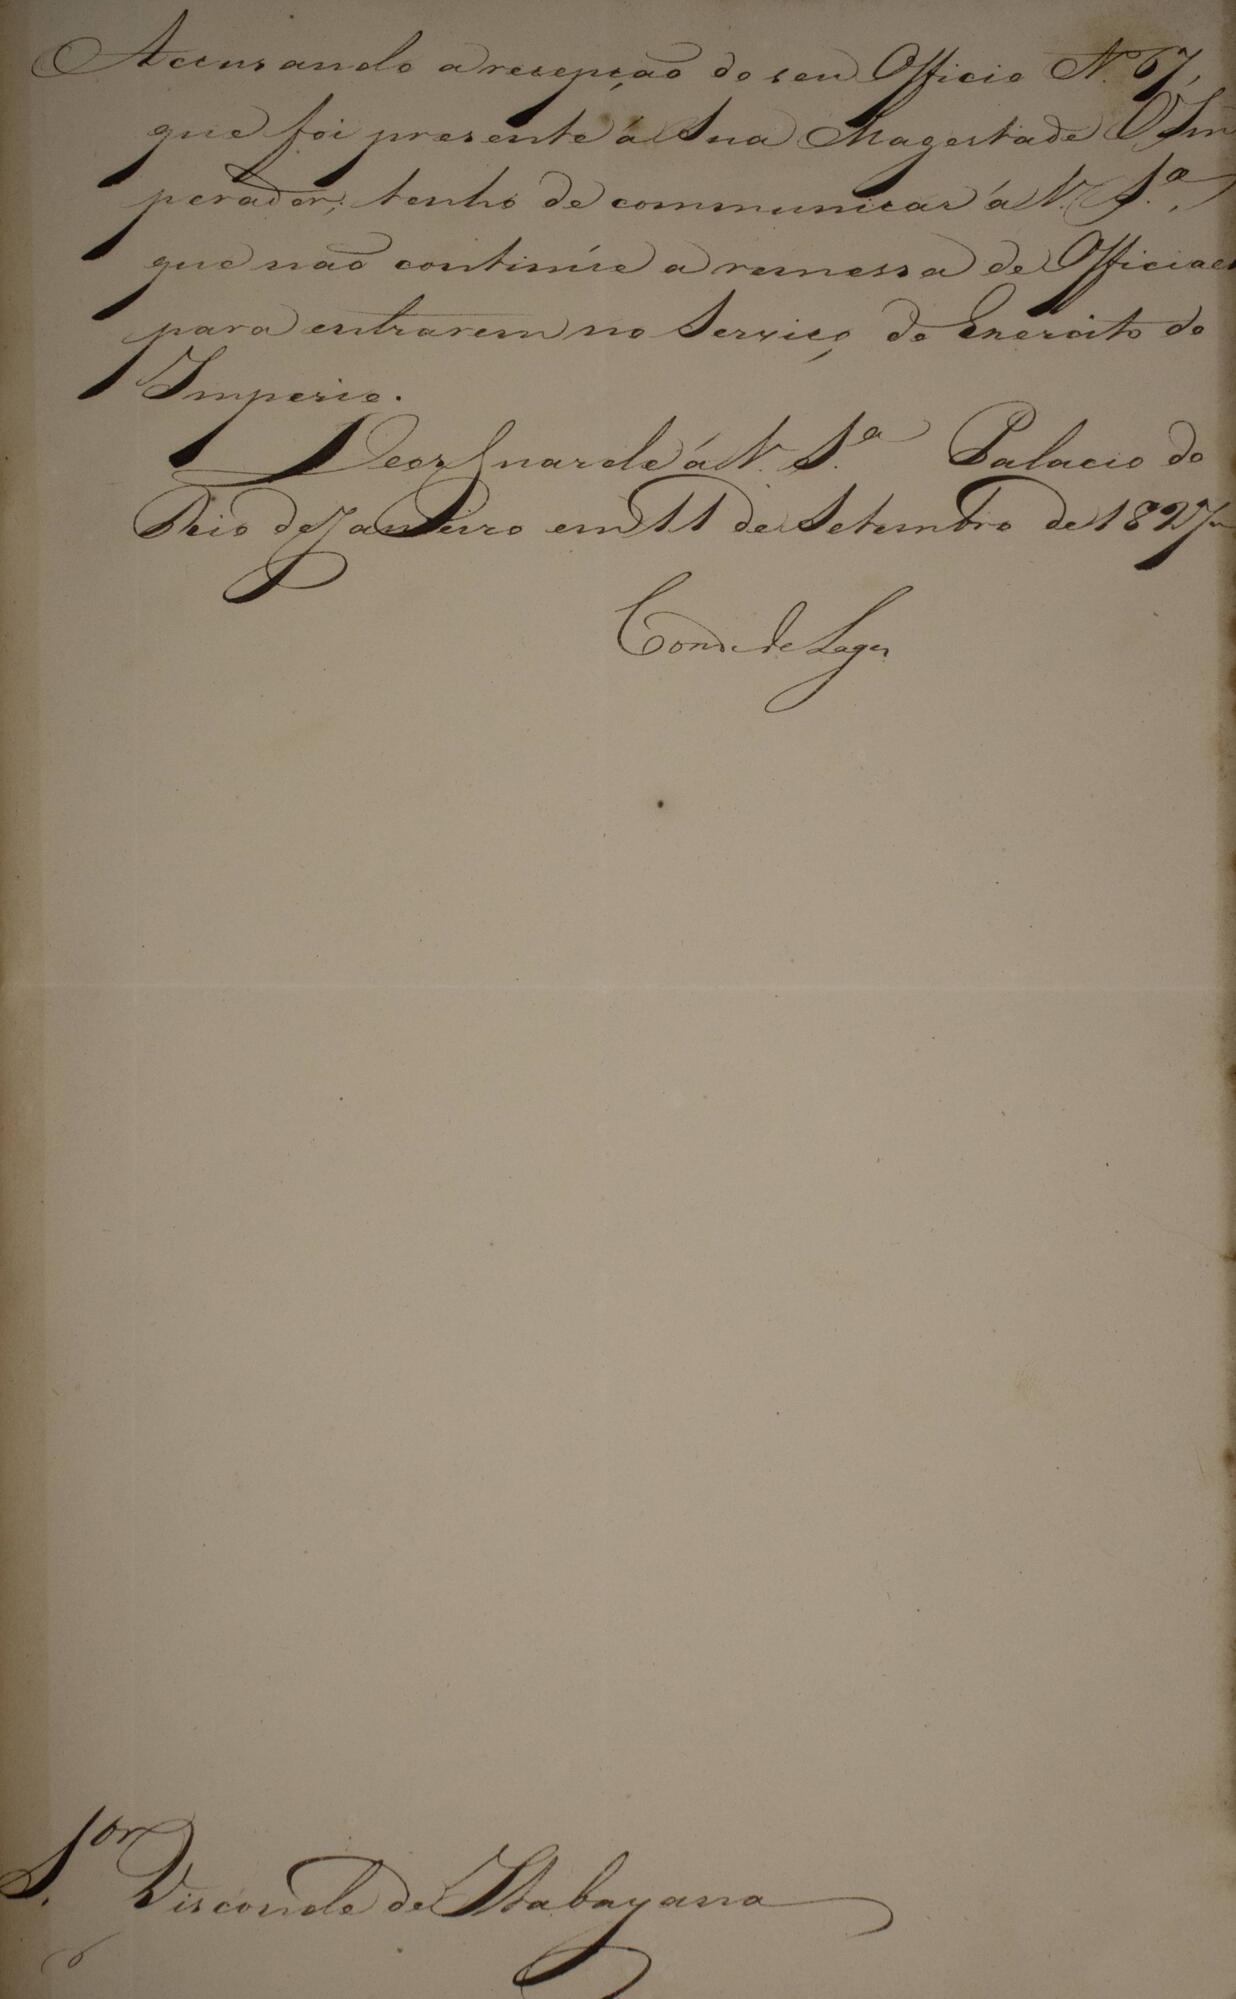 Accusando a recepção do seu Officio N.º 67,
que foi presente á Sua Magestade O Im
perador; tenho de communicar á V. S.ª,
que não continúe a remessa de Officiaes
para entrarem no Serviço do Exercito do
Imperio.
Deos Guarde á V. S.ª Palacio do
Rio de Janeiro em 11 de Setembro de 1827
Conde de Lages
S.or Visconde de Itabayana